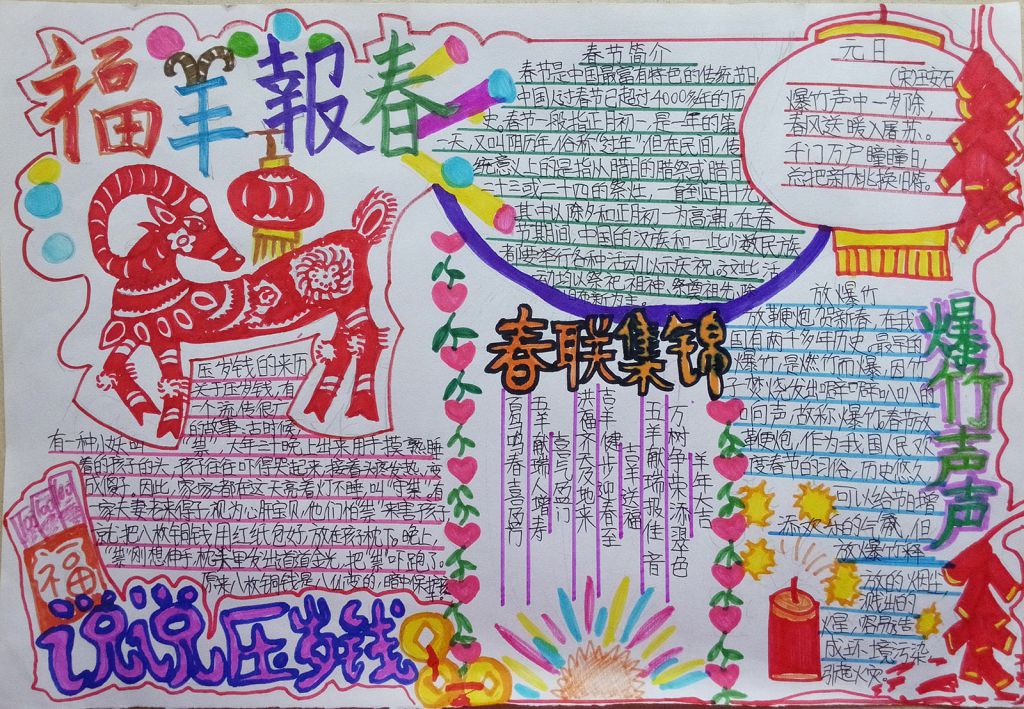 福羊報春
春节简介
春节是中国最富有特色的传统节日,
中国人过春节已超过4000多年的历
史。春节一般指正月初一,是一年的第
一天,又叫阴历年,俗称"过年"但在民间,传
统意义上的是指从腊月的腊祭或腊月
二十三或二十四的祭灶,一直到正月十九,
其中以除夕和正月初一为高潮。在春
节期间,中国的汉族和一些少数民族
都要举行各种活动以示庆祝。这些活
动均以祭祀祖神、祭奠祖先、除
旧布新为主。
元日
(宋)王安石
爆竹声中一岁除,
春风送暖入屠苏。
千门万户瞳瞳日,
总把新桃换旧符。
压岁钱的来历
关于压岁钱,有
一个流传很广
的故事。古时候,
有一种小妖叫"祟"大年三十晚上出来用手摸熟睡
着的孩子的头,孩子往往吓得哭起来,接着头疼发热,变
成傻子。因此,家家都在这天亮着灯不睡,叫"守祟"。有
一家夫妻老来得子,视为心肝宝贝,他们怕"祟"来害孩子,
就把八枚铜钱用红纸包好,放在孩子枕下。晚上,
"祟"刚想伸手,枕头里发出道道金光,把"祟"吓跑了。
原来八枚铜钱是八仙变的,暗中保护孩
福
说说压岁钱
春联集锦
羊年大吉
万树争荣添翠色
五羊献瑞报佳音
吉羊送福
吉羊健步迎春至
洪福齐天及地来
喜气盈门
五羊献瑞人增寿
百鸟鸣春喜盈门
放爆竹
放鞭炮贺新春,在我
国有两千多年历史。最早的
爆竹,是燃竹而爆,因竹
子焚烧发出噼噼叭叭的
响声,故称爆竹。春节放
鞭炮,作为我国人民欢
度春节的习俗,历史悠久,
可以给节日增
添欢乐的气氛,但
放爆竹释
放的烟尘,
溅出的
火星,容易造
成环境污染,
引起火灾。
爆竹声声